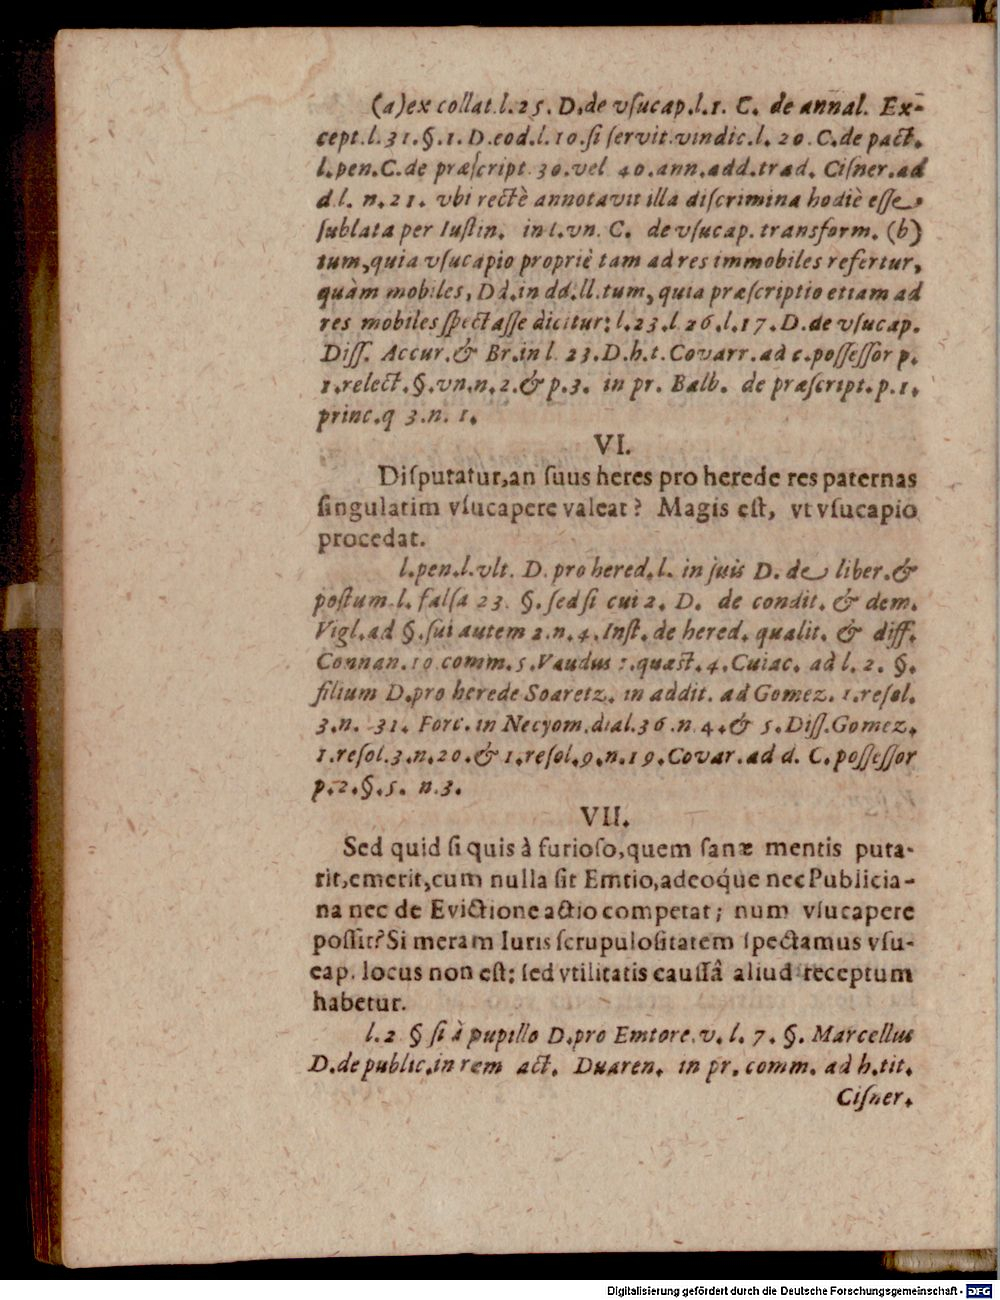 (a)ex collat.l.25. D.de vſucap.l.1. C. de annal. Ex-
cept.l.31.§.1.D.eod.l.10.ſi ſervit.vindic.l. 20.C.de pact.
l.pen.C.de præſcript.30.vel 40.ann.add.trad. Ciſner.ad
d.l. n.21. vbi rectè annotavit illa diſcrimina hodiè eſſe,
ſublata per Iuſtin. in l.vn. C. de vſucap. transform. (b)
tum,quia vſucapio propriè tam ad res immobiles refertur,
quàm mobiles, Dd.in dd.ll.tum, quia præſcriptio etiam ad
res mobiles ſpectaſſe dicitur: l.23.l.26.l.17.D.de vſucap.
Diſſ. Accur.& Br.in l. 23.D.h.t.Covarr.ad c.poſſeſſor p.
1.relect.§.vn.n.2.& p.3. in pr. Balb. de præſcript.p.1.
princ.q 3.n. 1.
VI.
Diſputatur,an ſuus heres pro herede res paternas
ſingulatim vſucapere valeat? Magis eſt, vt vſucapio
procedat.
l.pen.l.vlt. D. pro hered.l. in ſuis D. de liber.&
poſtum.l.falſa 23. §.ſed ſi cui 2. D. de condit. & dem.
Vigl.ad §.ſui autem 2.n.4.Inſt.de hered. qualit. & diff.
Connan.10.comm.5.Vaudus 1.quæſt.4.Cuiac. ad l. 2. §.
filium D.pro herede Soaretz. in addit. ad Gomez. 1.reſol.
3.n. 31. Forc. in Necyom.dial.36.n.4.& 5.Diſſ.Gomez.
1.reſol.3.n.20.& 1.reſol.9.n.19.Covar.ad d. C.poſſeſſor
p.2.§.5. n.3.
VII.
Sed quid ſi quis à furioſo,quem ſanæ mentis puta-
rit,emerit,cum nulla ſit Emtio,adeoq́ue nec Publicia-
na nec de Evictione actio competat; num vſucapere
poſſit? Si meram Iuris ſcrupuloſitatem ſpectamus vſu-
cap. locus non eſt: ſed vtilitatis cauſſâ aliud receptum
habetur.
l.2 § ſi à pupillo D.pro Emtore.v. l. 7. §. Marcellus
D.de public.in rem act. Duaren. in pr. comm. ad h.tit.
Ciſner.
Digitalisierung gefördert durch die Deutsche Forschungsgemeinschaft - DFG